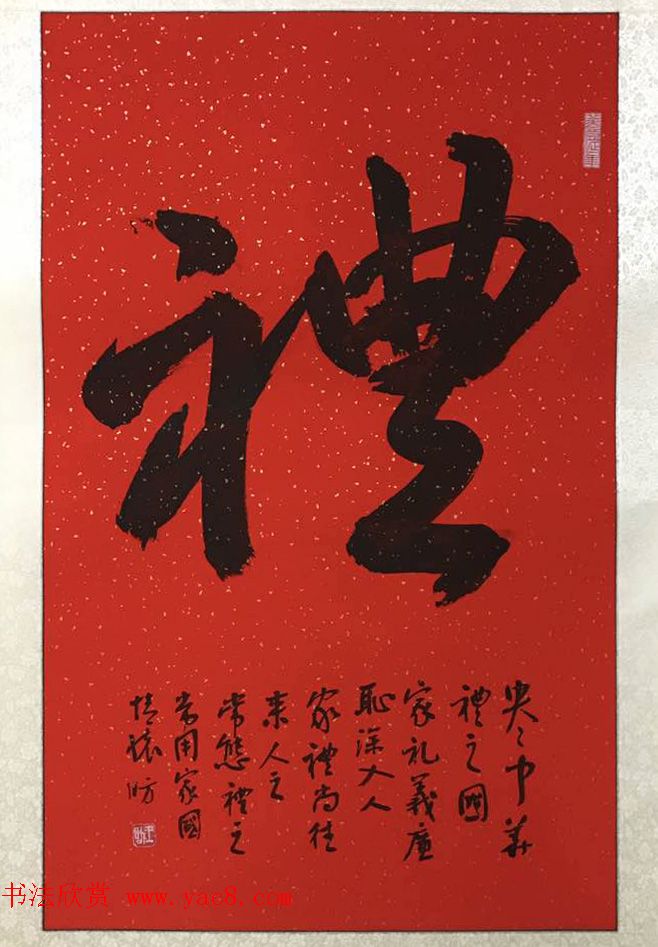 禮
央〻中華
禮之國
家礼義廉
恥深大人
家禮尚往
来人之
常態禮之
常用家國
情
书法欣赏 www.yac8.com